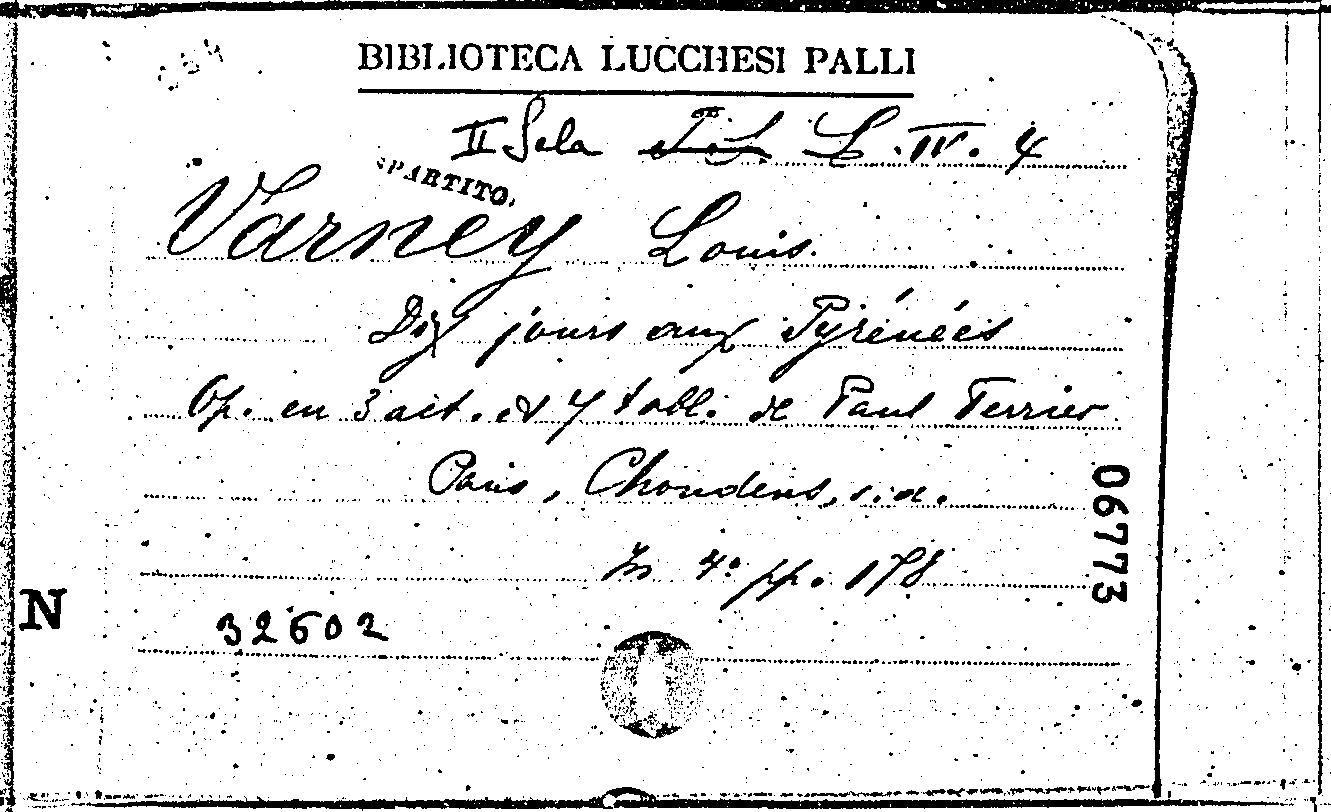 BIBLIOTECA LUCCHESI PALLI
II Sala L. IV. 4
SPARTITO.
Varney Louis.
Dix jours aux Pyrénées
Op. en 3 act. et 7 tabl. de Paul Ferrier
Paris, Choudens, s.d.
In 4º pp. 178
06773
N
32602